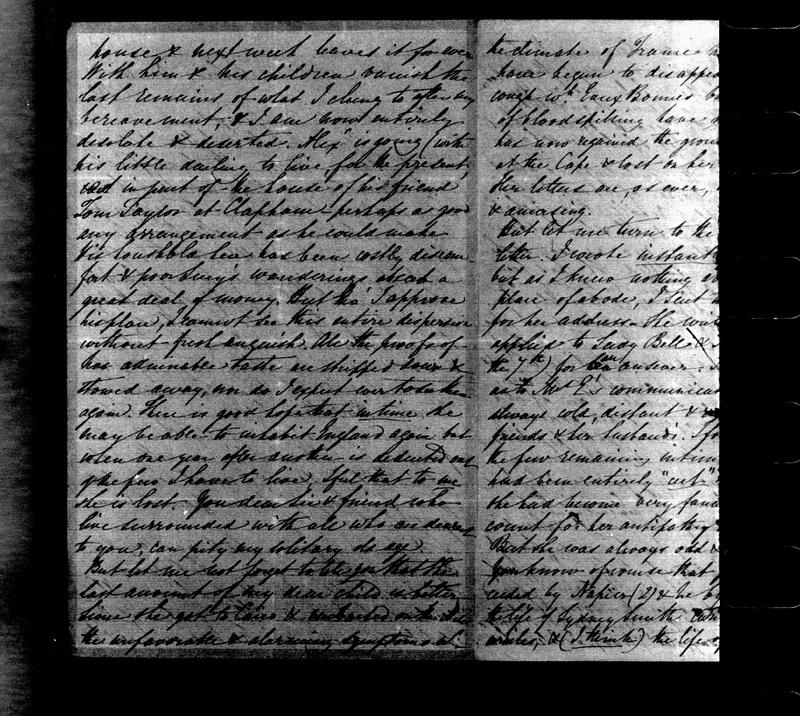 house & next week leaves it for ever
With him & his children vanish the
last remains of what I clung to after my
bereavement, & I am now entirely
desolate & deserted. Alex is going (with
his little darling to live for the present
in part of the house of his friend
Tom Taylor at Clapham perhaps as good
any arrangement as he could make
His household here has been costly discom
fort & poor Lucy's wanderings a
great deal of money. But tho' I approve
his plan, I cannot see this entire dispersion
without fresh anguish. All the proofs of
his admirable taste are stripped down &
stowed away, nor do I expect ever to see them
again. There is good hope that in time she
may be able to inhabit England again but
when one year after another is deducted out
of the few I have to live, I feel that to me
she is lost. You dear Sir & friend who
live surrounded with all who are dearest
to you, can pity my solitary old age.
But let me not forget to tell you that the
last account of my dear child is better
Since she got to Cairo & embarked on the Nile
the unfavorable & alarming symptoms
the climate of France
have begun to disappear
cough wh. Eaux Bonnes
of blood spitting have
has now regained the ground
at the Cape & lost
Her letters are, as ever,
& amusing.
But let me turn to the
letter. I wrote instantly
but as I knew nothing
place of abode, I sent
for her address. She
applied to Lady Bell
the 7th) for an answer.
as to communicat
always cold, distant &
friends & her husband's.
the few remaining
had been entirely "cut"
she had become very
count for her antipathy
But she was always odd &
know of course that
ceeded by Napier (2) &
the life of Sydney Smith
writes, & (I think) the life